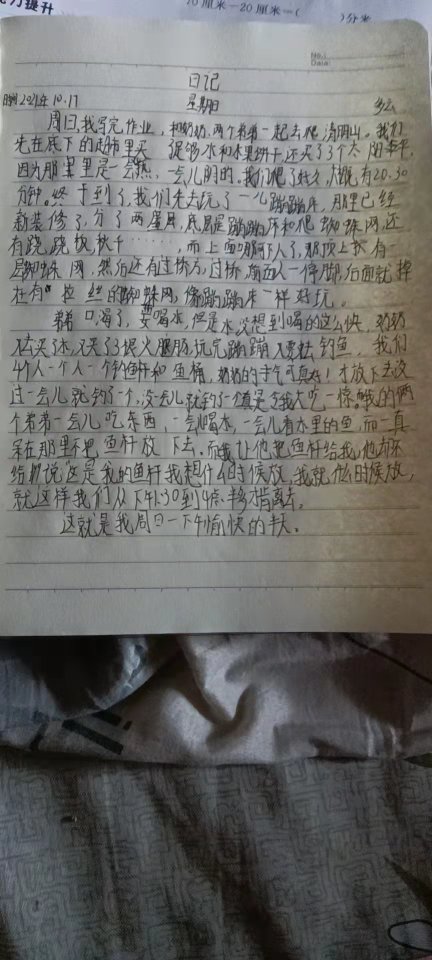 力提升
10厘米-20厘米=( )分米
No.:
Date:
日记
时间2021年10.17 星期日 多云
周日,我写完作业,和奶奶、两个弟弟一起去爬清明山。我们
先在底下的超市里买 足够水和水果饼干,还买了3个大
因为那里是一会热,一会儿阴的。我们爬了好久,大概有20.30
分钟。终于到了,我们先去玩了一么蹦蹦床,那里已经
新装修了,分了两层,底层是蹦蹦床和爬蜘蛛网,还
有跷跷板秋千……,而上面那可吓人了,那顶上我有一
层蜘蛛网,然后还有过桥方,过桥,前面人一停脚,后面就掉
在有 拉丝的蜘蛛网,像蹦蹦床一样好玩。
弟弟口渴了,要喝水,但是水没想到喝的这么快,奶奶
又去买了水,又买了3根火腿肠,玩完蹦蹦又要去钓鱼,我们
4个人一个人一个钓鱼杆和鱼桶,奶奶的手气可真好!才放下去没
过一会儿就钓了一个,没一会儿就钓了一个真是令我大吃一惊。我的俩
个弟弟一会儿吃东西,一会喝水,一会儿看水里的鱼,而一直
呆在那里不把鱼杆放下去,而我让他把鱼杆给我,他却不
给,他说"这是我的鱼杆我想什么时候放,我就什么时候放,
就这样我们从下午1:30到4点半多才离去。
这就是我周日一下午愉快的半天。